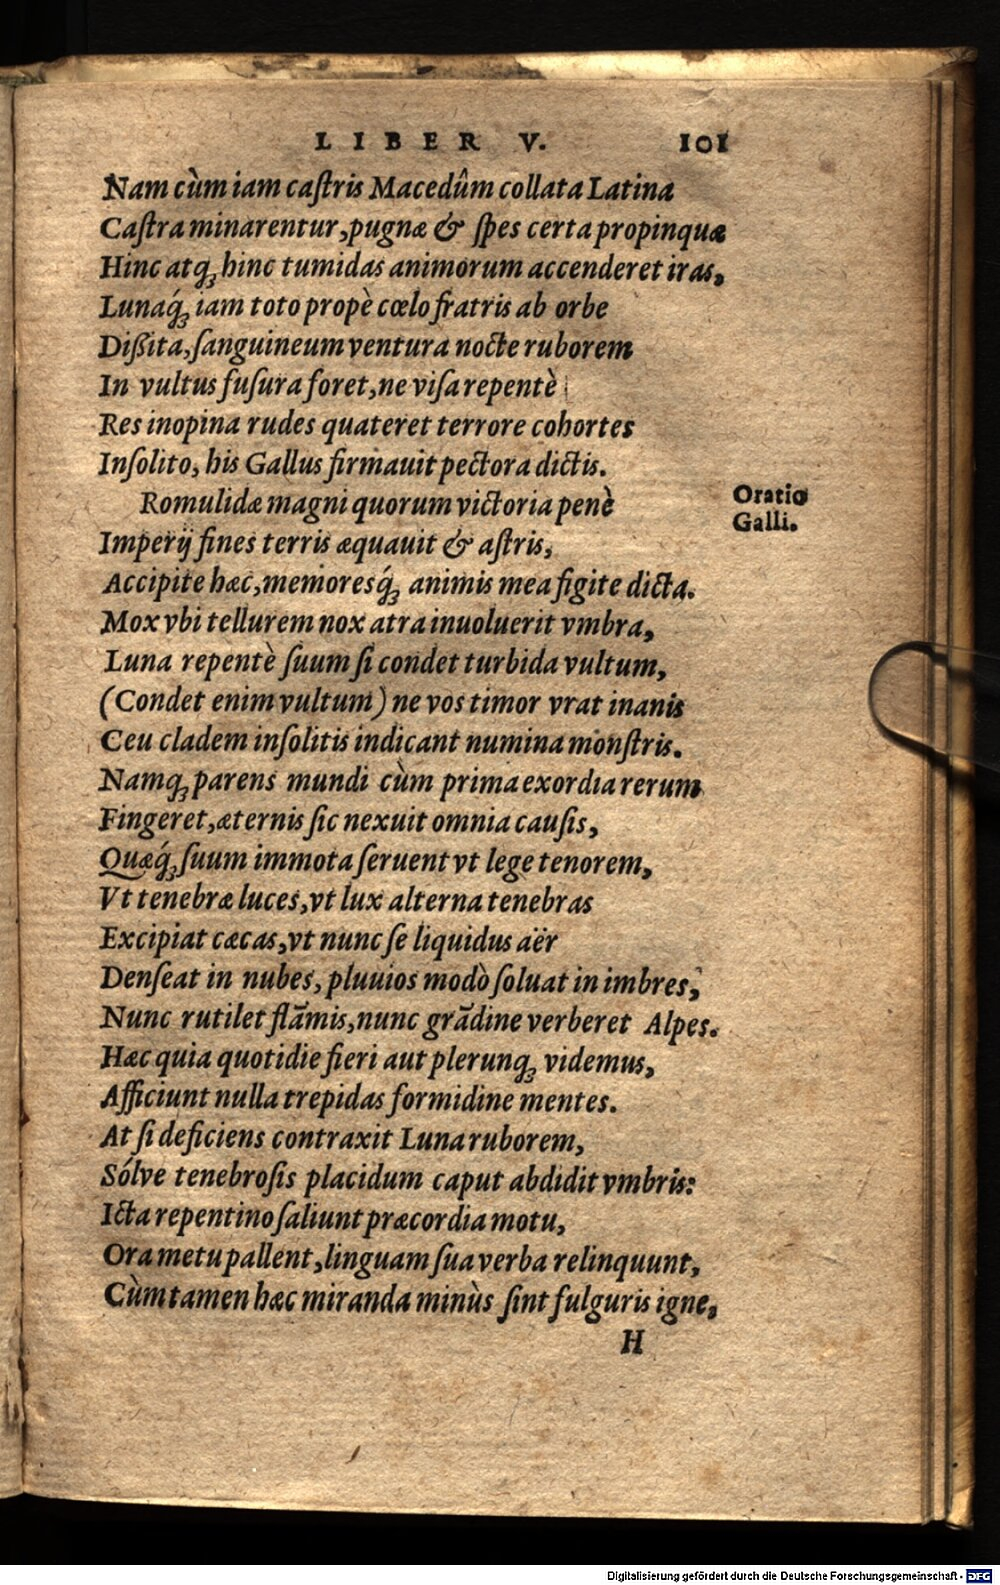 LIBER V. 101
Nam cùm iam caſtris Macedûm collata Latina
Caſtra minarentur, pugnæ & ſpes certa propinquæ
Hinc atq; hinc tumidas animorum accenderet iras,
Lunaq́; iam toto propè cœlo fratris ab orbe
Dißita, ſanguineum ventura nocte ruborem
In vultus fuſura foret, ne viſa repentè
Res inopina rudes quateret terrore cohortes
Inſolito, his Gallus firmauit pectora dictis.
Romulidæ magni quorum victoria penè
Oratio
Galli.
Imperij fines terris æquauit & aſtris,
Accipite hæc, memoresq́; animis mea figite dicta.
Mox vbi tellurem nox atra inuoluerit vmbra,
Luna repentè ſuum ſi condet turbida vultum,
(Condet enim vultum) ne vos timor vrat inanis
Ceu cladem inſolitis indicant numina monſtris.
Namq; parens mundi cùm prima exordia rerum
Fingeret, æternis ſic nexuit omnia cauſis,
Quæq́; ſuum immota ſeruent vt lege tenorem,
Vt tenebræ luces, vt lux alterna tenebras
Excipiat cæcas, vt nunc ſe liquidus aër
Denſeat in nubes, pluuios modò ſoluat in imbres,
Nunc rutilet flāmis, nunc grādine verberet Alpes.
Hæc quia quotidie fieri aut plerunq; videmus,
Afficiunt nulla trepidas formidine mentes.
At ſi deficiens contraxit Luna ruborem,
Sólve tenebroſis placidum caput abdidit vmbris:
Icta repentino ſaliunt præcordia motu,
Ora metu pallent, linguam ſua verba relinquunt,
Cùm tamen hæc miranda minùs ſint fulguris igne,
H
Digitalisierung gefördert durch die Deutsche Forschungsgemeinschaft - DFG